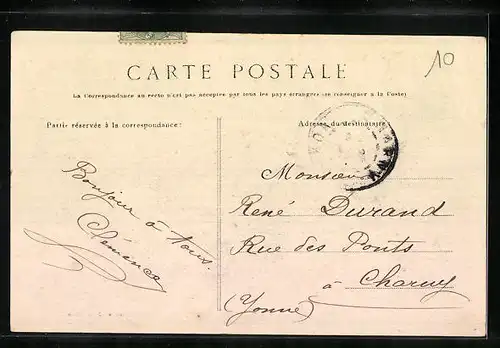 10
CARTE POSTALE
La Correspondance au recto n'est pas acceptée par tous les pays étrangers (se renseigner à la Poste)
Partie réservée à la correspondance:
Adresse du destinataire
Bonjour à tous.
Clémence
Monsieur
René Durand
Rue des Ponts
à Charny
(Yonne)